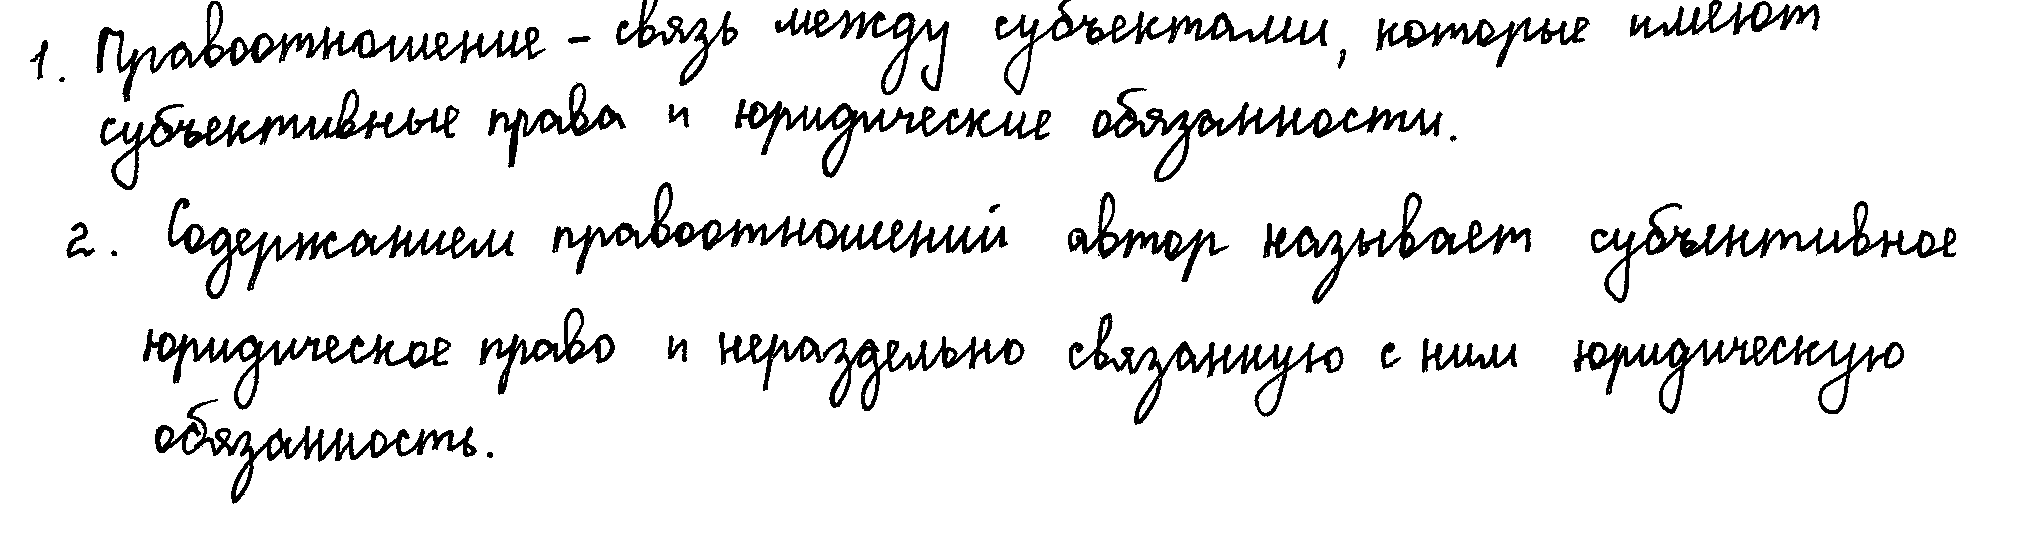 1. Правоотношение – связь между субъектами, которые имеют
субъективные права и юридические обязанности.
2. Содержанием правоотношений автор называет субъективное
юридическое право и нераздельно связанную с ним юридическую
обязанность.